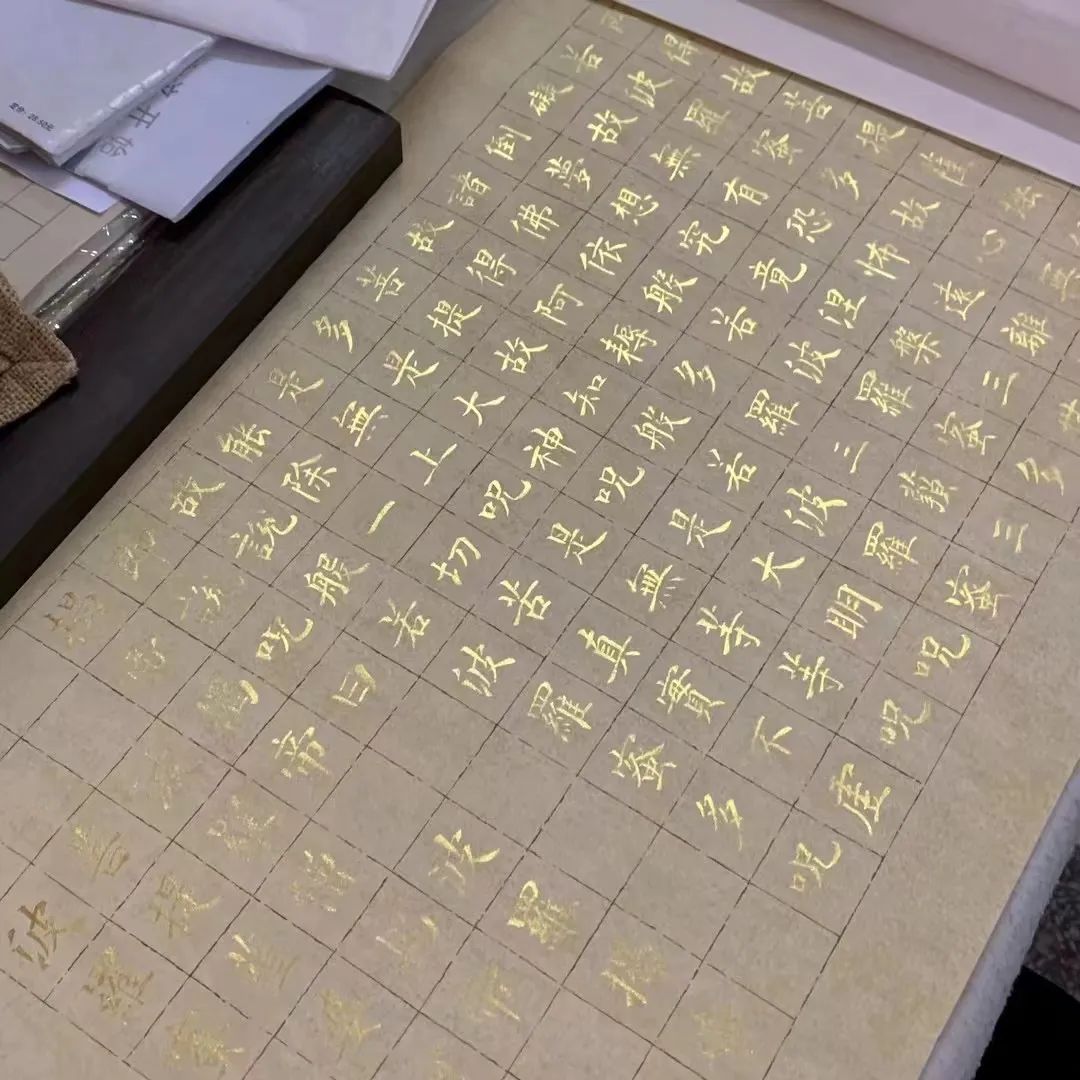 得故菩提
若波羅蜜多故心無
礙故無有恐怖遠離
倒夢想究竟涅槃三世
諸佛依般若波羅蜜多
故得阿耨多羅三藐三
菩提故知般若波羅蜜
多是大神咒是大明咒
是無上咒是無等等咒
能除一切苦真實不虛
故說般若波羅蜜多咒
即說咒曰
揭諦揭諦 波羅揭諦
羅僧揭諦
菩提薩婆
波羅蜜
定价：28.50元